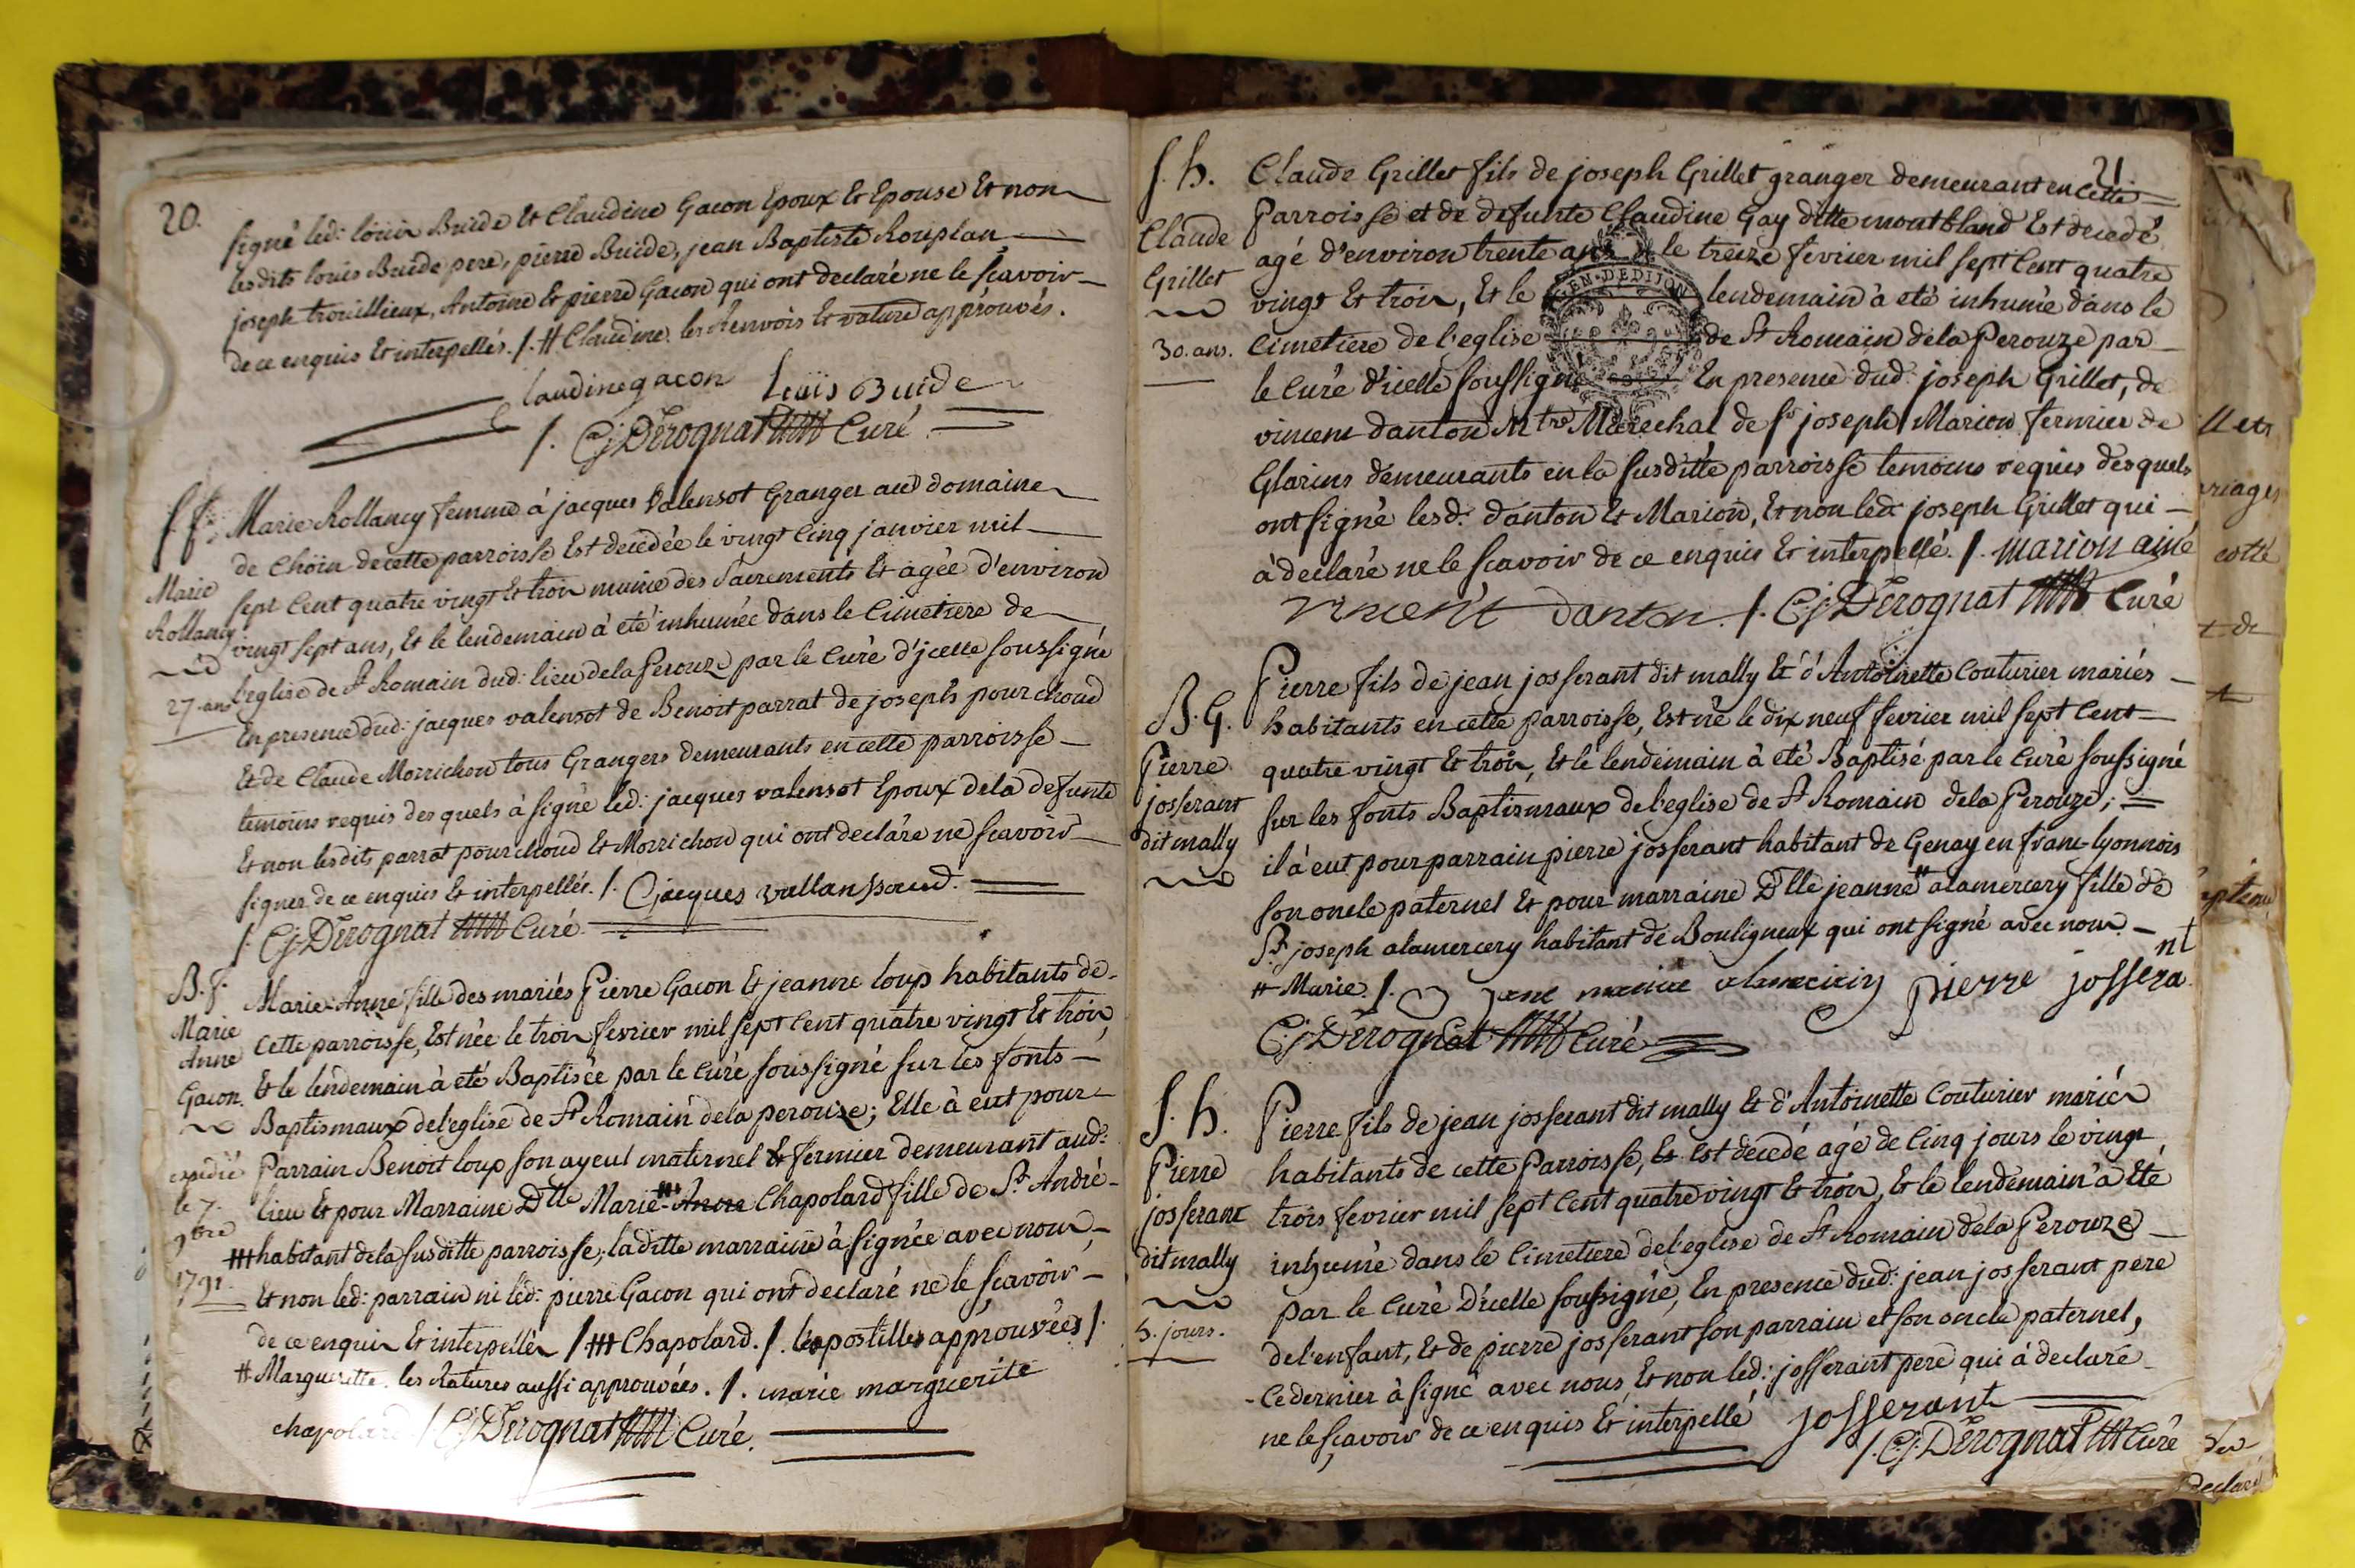 20.
signé led: loüis Buide Et Claudine Gacon Epoux Et Epouse Et non
lesdits louis Buide pere, pierre Buide, jean Baptiste Rouplan
joseph trouillieux, Antoine Et pierre Gacon qui ont declaré ne le sçavoir
de ce enquis Et interpellés. /. # Claudine. les Renvois Et rature approuvés.
Claudine gacon loüis Buide
/. CjDerognat Curé
S. f.
Marie
Rollancy
27. ans
Marie Rollancy femme à jacques valensot Granger aud domaine
de Choin de cette parroisse Est decedée le vingt cinq janvier mil
sept Cent quatre vingt Et trois munie des Sacrements Et agée d'environ
vingt sept ans, Et le lendemain à eté inhumée dans le Cimetiere de
l'eglise de St Romain dud: lieu dela Perouze par le Curé d'jcelle soussigné
En presence dud: jacques valensot de Benoit parrat de joseph pourchoud
Et de Claude Morrichon tous Grangers demeurants en cette parroisse
temoins requis des quels à signé led: jacques valensot Epoux dela defunte
Et non lesdits parrat pourchoud Et Morrichon qui ont declare ne sçavoir
signer de ce enquis Et interpellés. /. jacques vallansaud.
/. CjDerognat Curé
B. f.
Marie
Anne
Gacon.
expedié
le 7.
9bre
1791.
Marie-Anne fille des mariés Pierre Gacon Et jeanne loup habitants de
Cette parroisse, Est née le trois fevrier mil sept Cent quatre vingt Et trois,
Et le lendemain à eté Baptisée par le Curé soussigné sur les fonts
Baptismaux del'eglise de St Romain dela perouze; Elle à eut pour
Parrain Benoit loup son ayeul maternel Et fermier demeurant aud:
lieu Et pour Marraine Dlle Marie-Anne Chapolard fille de Sr André
habitant dela susditte parroisse; laditte marraine à signée avec nous,
Et non led: parrain ni led: pierre Gacon qui ont declaré ne le sçavoir
de ce enquis Et interpellés /. Chapolard. /. les postilles approuvées /.
# Marguerite. les Ratures aussi approuvées. /. marie marguerite
chapolard /. CjDerognat Curé.
21
S. h.
Claude
Grillet
30. ans.
Claude Grillet fils de joseph Grillet granger demeurant en cette
Parroisse et de defunte Claudine Gay ditte montbland Est decedé
agé d'environ trente ans le treize fevrier mil sept Cent quatre
vingt Et trois, Et le lendemain à eté inhumé dans le
Cimetiere de l'eglise de St Romain dela Perouze par
le Curé d'icelle soussigné En presence dud: joseph Grillet, de
vincent danton Mtre Marechal de Sr joseph Marion fermier de
Glarins demeurants en la susditte parroisse temoins requis desquels
ont signé lesd: danton Et Marion, Et non led: joseph Grillet qui
à declaré ne le sçavoir de ce enquis Et interpellé. /. marion ainé
vincent danton. /. CjDerognat Curé
B. G.
Pierre
josserant
dit mally
Pierre fils de jean josserant dit mally Et d'Antoinette Couturier mariés
habitants en cette parroisse, Est né le dix neuf fevrier mil sept Cent
quatre vingt Et trois, Et le lendemain à eté Baptisé par le Curé soussigné
sur les fonts Baptismaux del'eglise de St Romain dela Perouze;
il à eut pour parrain pierre josserant habitant de Genay en franc-lyonnois
son oncle paternel Et pour marraine Dlle jeanne # alamercery fille de
Sr joseph alamercery habitant de Bouligneux qui ont signé avec nous.
# Marie. /. pierre josserant
CjDerognat Curé
S. h.
Pierre
josserant
dit mally
5. jours.
Pierre fils de jean josserant dit mally Et d'Antoinette Couturier mariés
habitants de cette Parroisse, Est decedé agé de Cinq jours le vingt
trois fevrier mil sept Cent quatre vingt Et trois, Et le lendemain à Eté
inhumé dans le Cimetiere del'eglise de St Romain dela Perouze
par le Curé D'icelle soussigné, En presence dud: jean josserant pere
del'enfant, Et de pierre josserant son parrain et son oncle paternel,
Ce dernier à signé avec nous Et non led: josserant pere qui à declaré
ne le sçavoir de ce enquis Et interpellé josserant
/. CjDerognat Curé